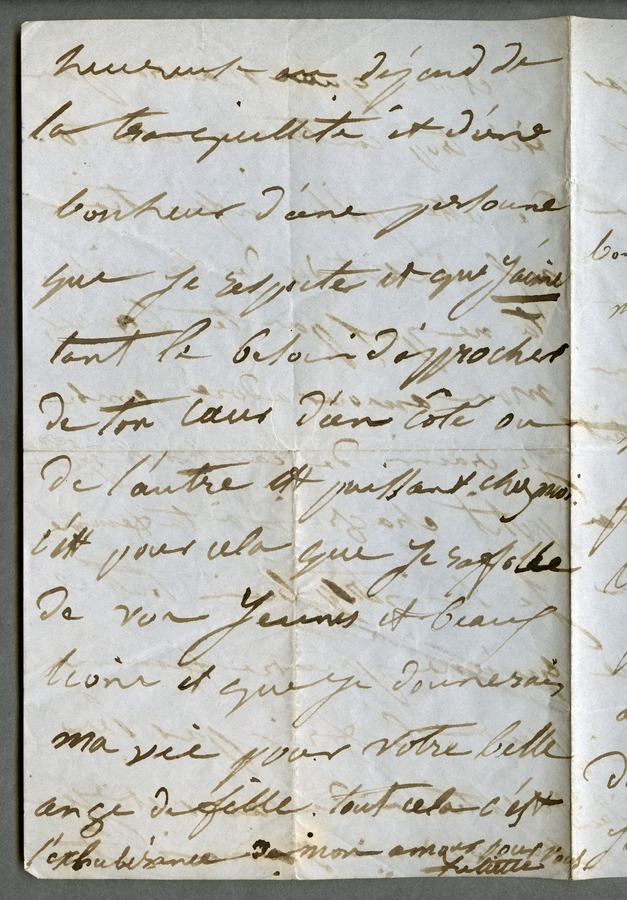 heureuse au dépend de
la tranquillité et d'une
bonheur d'une personne
que je respecte et que j'aime
tant le besoin d'approcher
de ton cœur d'un côté ou
de l'autre est puissant chez moi.
C'est pour cela que je raffolle
de vos jeunes et beaux
lions et que je donnerais
ma vie pour votre belle
ange de fille. tout cela c'est
l'exhubérance de mon amour pour vous.
Juliette